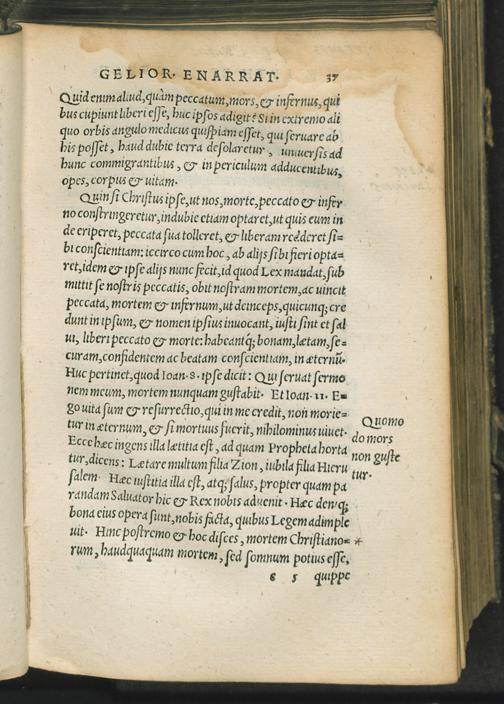 GELIOR· ENARRAT· 37
Quid enim aliud, quàm peccatum, mors, & infernus, qui
bus cupiunt liberi esse, huc ipsos adigit? Si in extremo ali
quo orbis angulo medicus quispiam esset, qui servare ab
his posset, haud dubie terra desolaretur, universis ad
hunc commigrantibus, & in periculum adducentibus,
opes, corpus & vitam·
Quin si Christus ipse, ut nos, morte, peccato & infer
no constringeretur, indubie etiam optaret, ut quis eum in
de eriperet, peccata sua tolleret, & liberam redderet si=
bi conscientiam: iccirco cum hoc, ab alijs sibi fieri opta=
ret, idem & ipse alijs nunc fecit, id quod Lex mandat, sub
mittit se nostris peccatis, obit nostram mortem, ac vincit
peccata, mortem & infernum, ut deinceps, quicunq; cre
dunt in ipsum, & nomen ipsius invocant, iusti sint et sal
vi, liberi peccato & morte: habeantq; bonam, lætam, se=
curam, confidentem ac beatam conscientiam, in æternũ·
Huc pertinet, quod Ioan· 8· ipse dicit: Qui servat sermo
nem meum, mortem nunquam gustabit· Et Ioan· 11· E=
go vita sum & resurrectio, qui in me credit, non morie=
tur in æternum, & si mortuus fuerit, nihilominus vivet·
Ecce hæc ingens illa lætitia est, ad quam Propheta horta
tur, dicens: Lætare multum filia Zion, iubila filia Hieru
salem· Hæc iustitia illa est, atq; salus, propter quam pa
randam Salvator hic & Rex nobis advenit· Hæc deniq;
bona eius opera sunt, nobis facta, quibus Legem adimple
vit· Hinc postremo & hoc disces, mortem Christiano=
rum, haudquaquam mortem, sed somnum potius esse,
g 5 quippe
Quomo
do mors
non guste
tur·
*